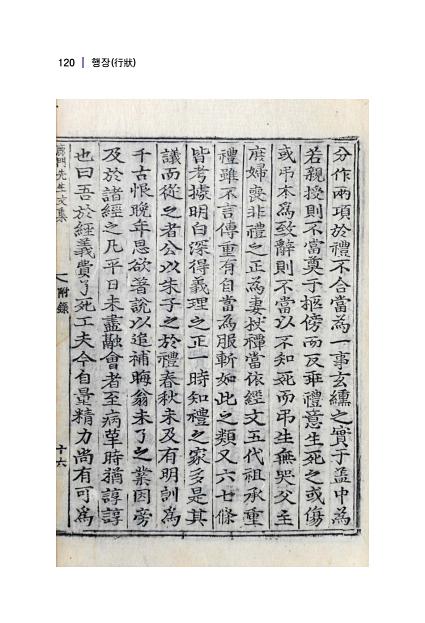 120 | 행장(行狀)
分作兩項於禮不合當為一事玄纁之實于盆中為
若親授則不當奠于柩傍而反乖禮意生死之或傷
或弔本為致辭則不當以不知死而弔生無哭父主
庶婦喪非禮之正為妻杖禫當依經文五代祖承重
禮雖不言傳重有自當為服斬如此之類又六七條
皆考據明白深得義理之正一時知禮之家多是其
議而從之者公以朱子之於禮春秋未及有明訓為
千古恨晚年思欲著說以追補晦翁未了之業因旁
及於諸經之凡平日未盡融會者至病革時猶諄諄
也曰吾於經義費了死工夫今自量精力尚有可為
門先生文集
附錄
十六